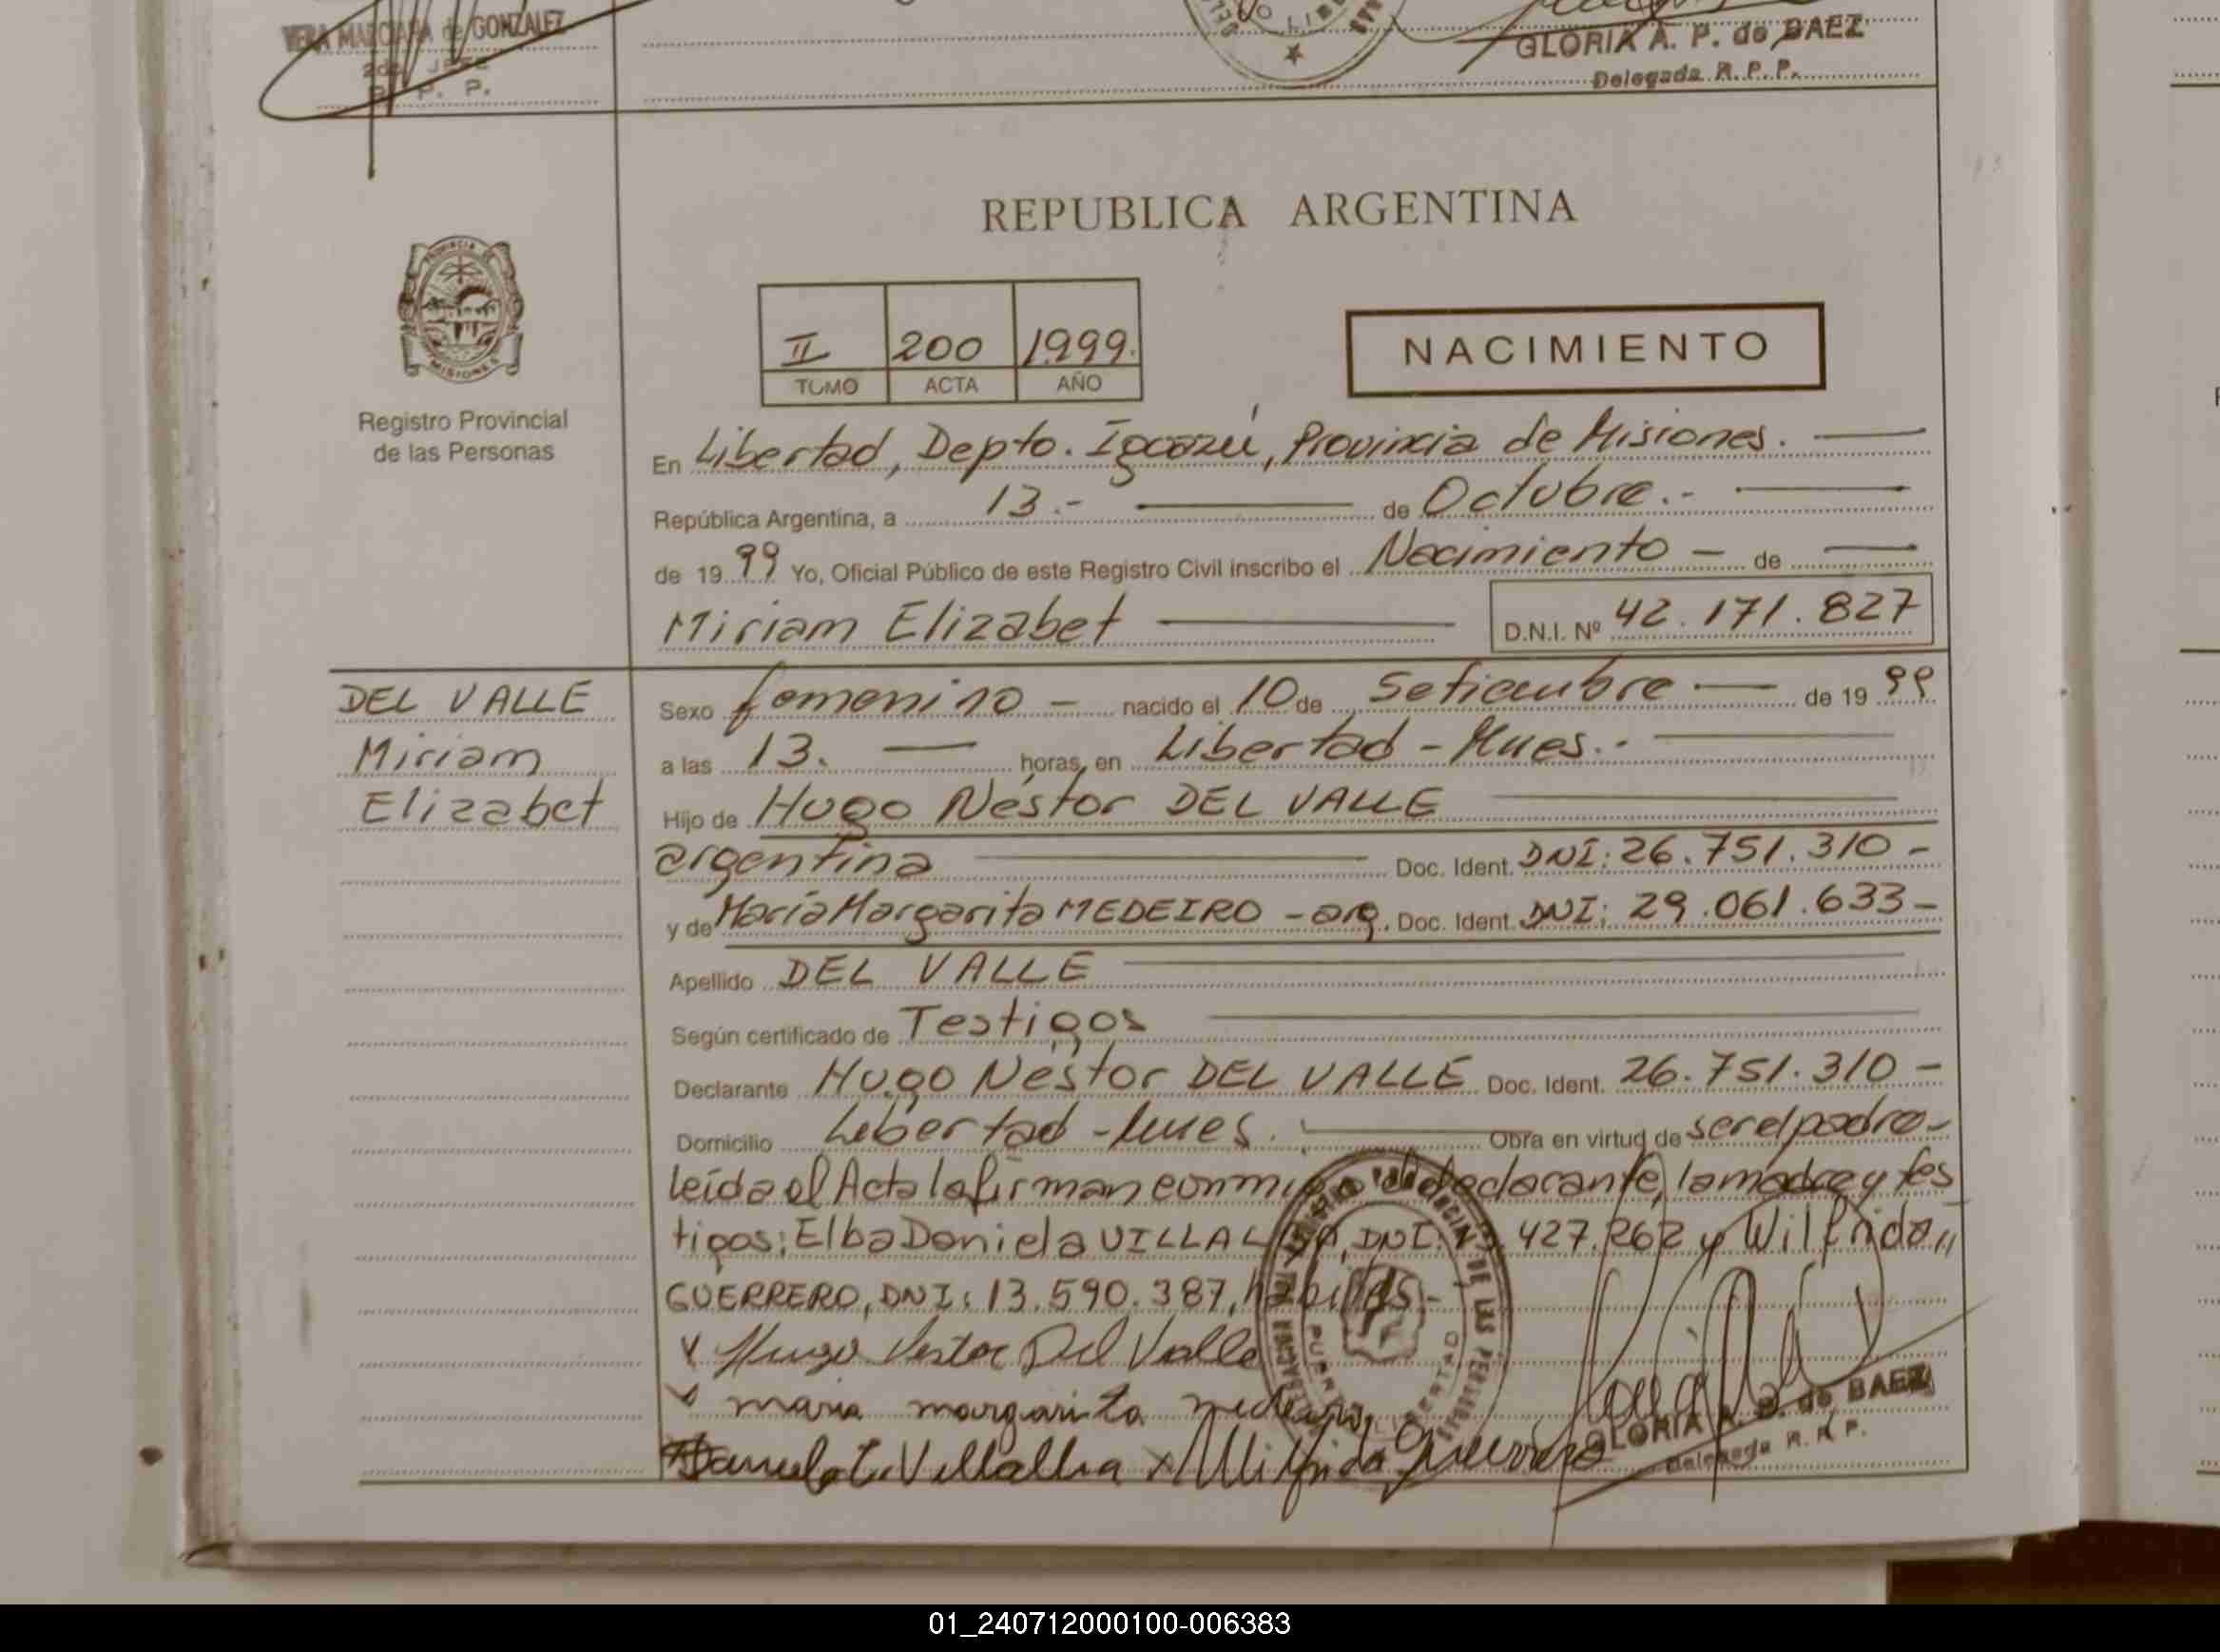 VERA MARCIARA de GONZALEZ
R. P. P.
GLORIA A. P. de BAEZ
Delegada R. P. P.
REPUBLICA ARGENTINA
PROVINCIA DE
MISIONES
Registro Provincial
de las Personas
II 200 1999.
TOMO ACTA AÑO
NACIMIENTO
En Libertad, Depto. Igcazú, Provincia de Misiones.
República Argentina, a 13.- de Octubre.-
de 1999 Yo, Oficial Público de este Registro Civil inscribo el Nacimiento - de
Miriam Elizabet
D.N.I. Nº 42.171.827
DEL VALLE
Miriam
Elizabet
Sexo femenino - nacido el 10 de Setiembre - de 1999
a las 13. horas, en Libertad - Mnes.-
Hijo de Hugo Néstor DEL VALLE
argentina Doc. Ident. DNI: 26.751.310 -
y de María Margarita MEDEIRO - arg. Doc. Ident. DNI: 29.061.633 -
Apellido DEL VALLE
Según certificado de Testigos
Declarante Hugo Néstor DEL VALLE Doc. Ident. 26.751.310 -
Domicilio Libertad - Mnes. Obra en virtud de ser el padre -
leída el Acta la firman conmigo el declarante, la madre y tes
tigos: Elba Daniela VILLALBA, DNI: 427.262 y Wilfrido,,
GUERRERO, DNI: 13.590.387, hábiles.-
x Hugo Nestor Del Valle
x maria margarita medeiro
Daniela E. Villalba x Wilfrido Guerrero
GLORIA A. P. de BAEZ
Delegada R. P. P.
01_240712000100-006383